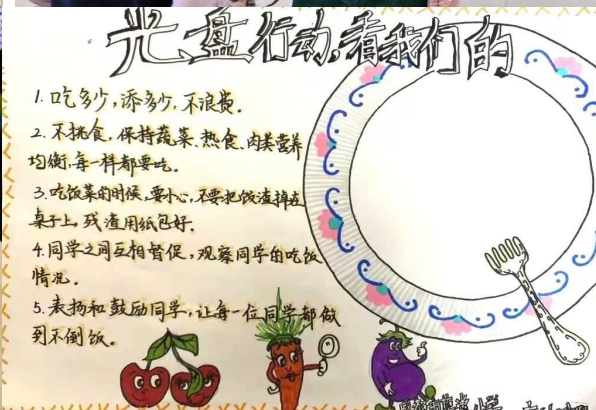 光盘行动,看我们的
1.吃多少,添多少,不浪费。
2.不挑食,保持蔬菜、热食、肉类营养
均衡,每一样都要吃。
3.吃饭菜的时候,要小心,不要把饭渣掉在
桌子上,残渣用纸包好。
4.同学之间互相督促,观察同学的吃饭
情况。
5.表扬和鼓励同学,让每一位同学都做
到不倒饭。
小学